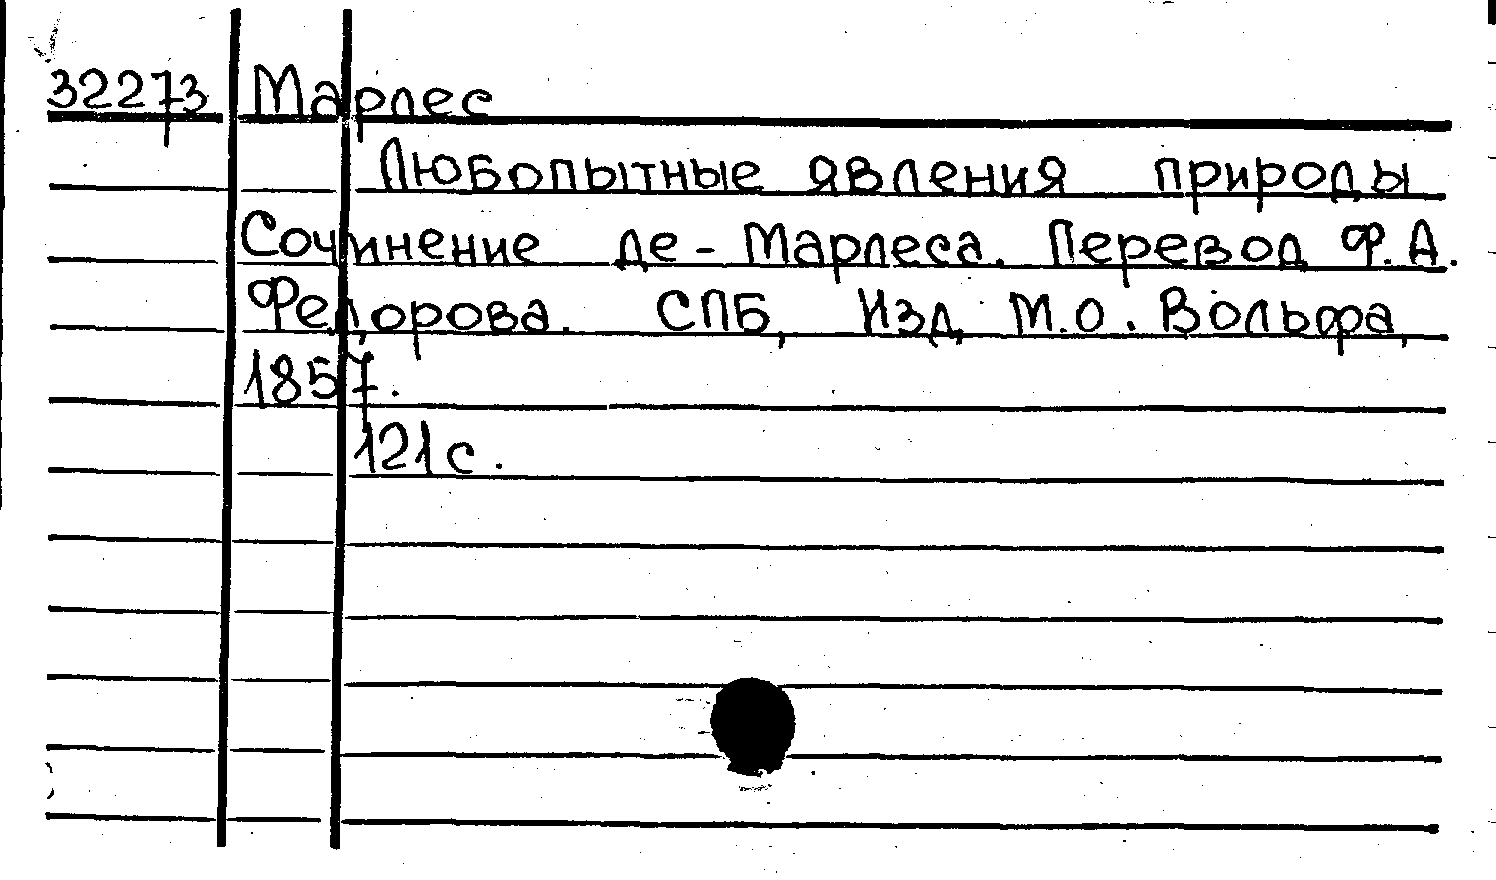 32273 Марлес
Любопытные явления природы
Сочинение де-Марлеса. Перевод Ф.А.
Федорова. СПБ, Изд. М.О. Вольфа,
1857.
121 с.